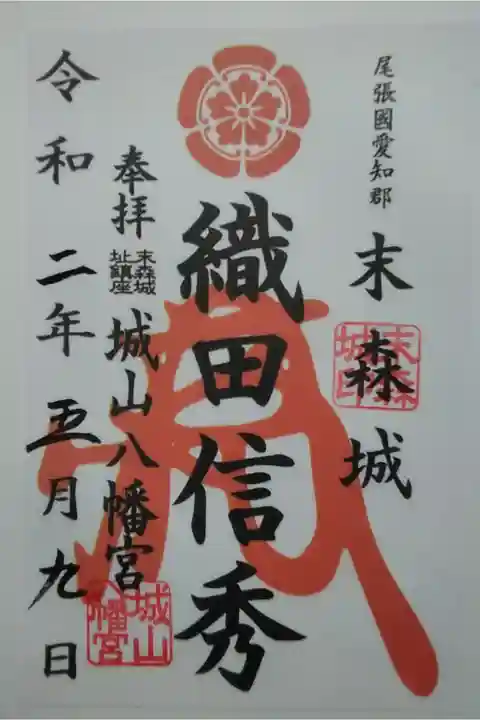 尾張國愛知郡
末森城
末森城印
織田信秀
奉拝
末森城址鎮座
城山八幡宮
城山八幡宮
令和二年五月九日